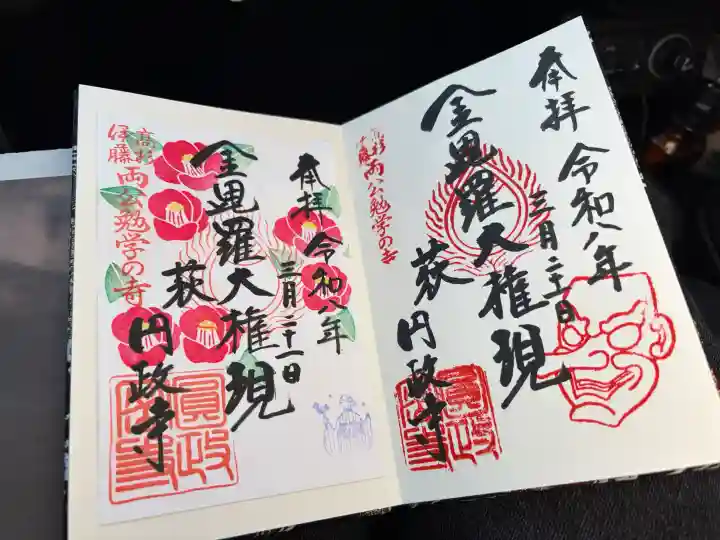 奉拝
令和八年
三月二十一日
金毘羅大権現
萩
円政寺
高杉
伊藤
両公勉学の寺
圓政
奉拝
令和八年
三月二十一日
金毘羅大権現
萩
円政寺
高杉
伊藤
両公勉学の寺
圓政